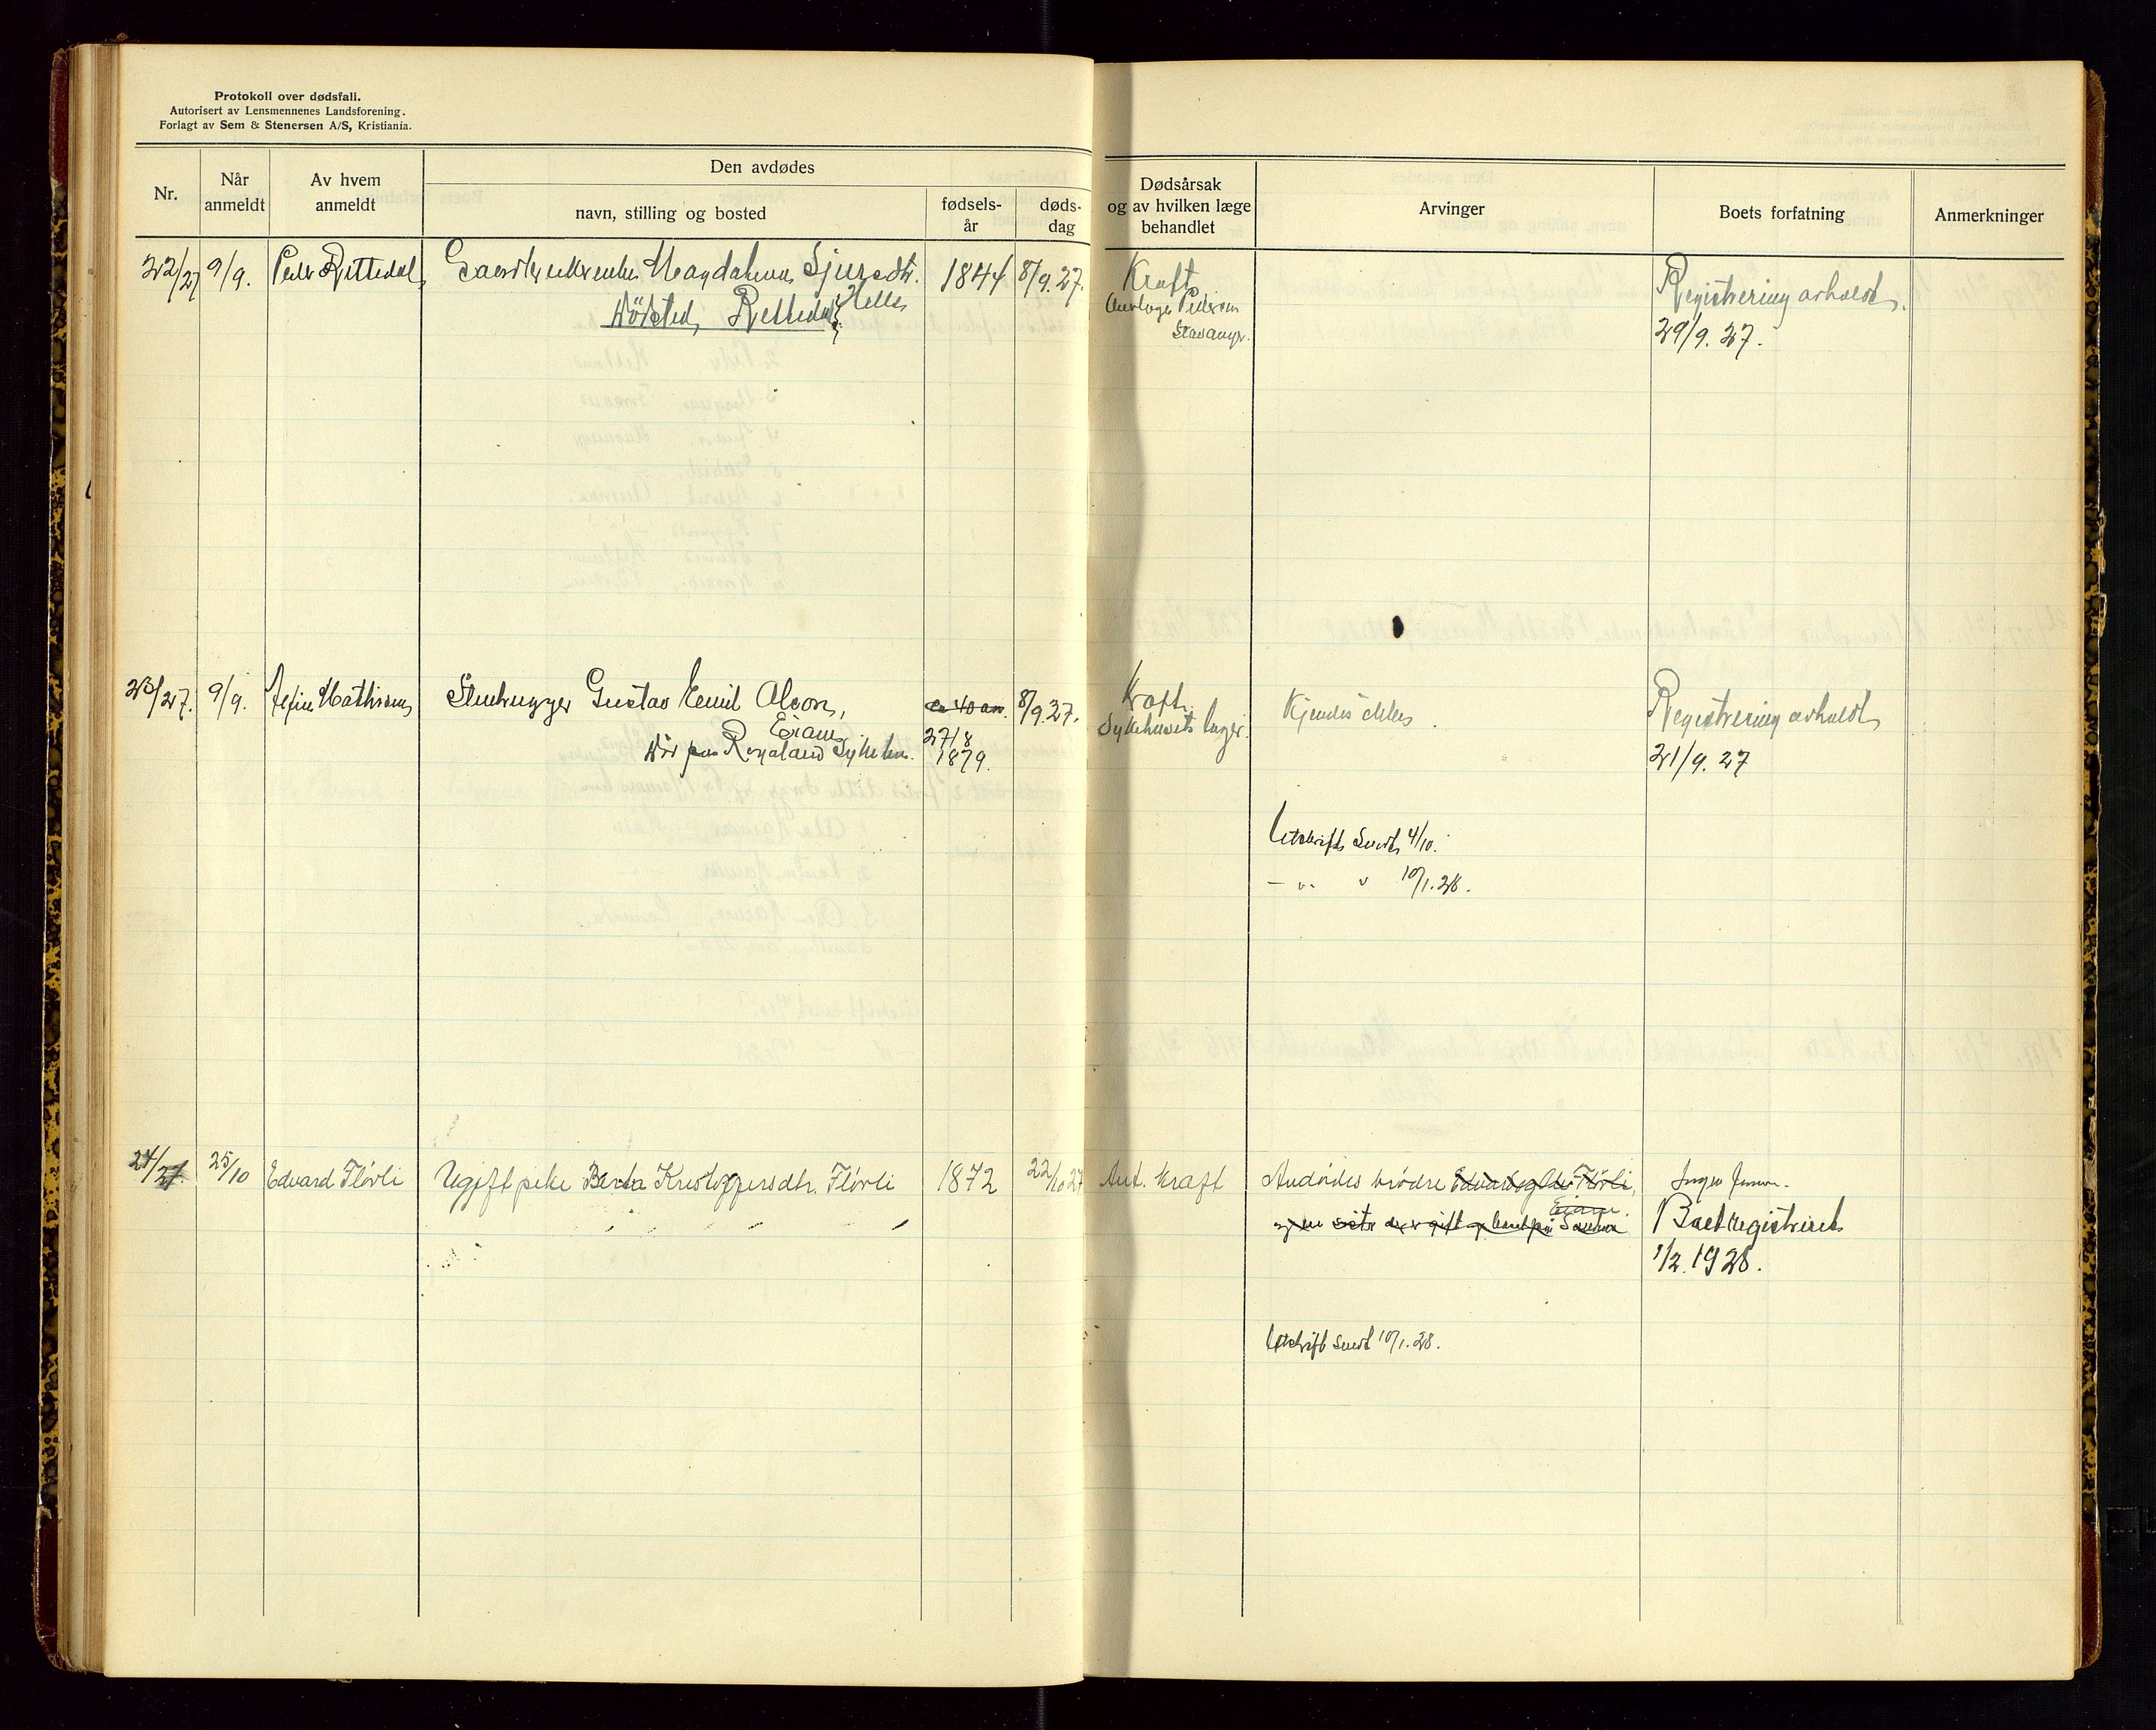 Protokoll over dødsfall.
Autorisert av Lensmennenes Landsforening.
Forlagt av Sem & Stenersen A/S, Kristiania.
Nr.
Når anmeldt
Av hvem anmeldt
Den avdødes
navn, stilling og bosted
fødsels-år
døds-dag
Dødsårsak og av hvilken læge behandlet
Arvinger
Boets forfatning
Anmerkninger
22/27 9/9. Peder Rettedal, Magdalena Sjursdtr. 1844 8/9.27. Kræft Registrering avholdt
Dødsted, Rettedal Helle Pedersen 29/9.27.
Stavanger.
23/27. 9/9. Mathisen, Stenhugger Gustav Emil Olson, ca 40 år. 8/9.27. Kræft. Kjendes ikke. Registrering avholdt
27/8 Sykehusets læger. 21/9.27
Død paa Rogaland Sykehus. 1879.
Utskrift sendt 4/10.
— " " 10/1.28.
24/27. 25/10 Edvard Flörli Ugift pike Berta Kristoffersdtr. Flörli 1872 22/10 27 Ant. Kræft Avdödes brödre Edvard og Ole Flörli, Ingen
og en söster der er gift og bosat på Boet registrert
1/2.1928.
Utskrift sendt 10/1.28.